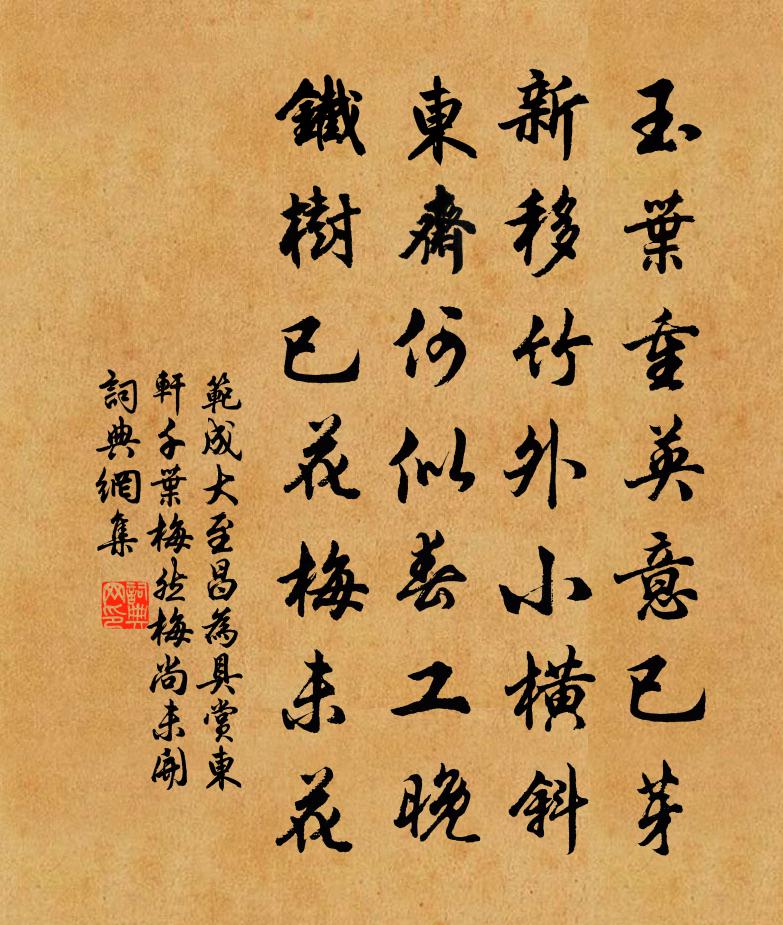 玉葉重英意已芽
新移竹外小橫斜
東齋何似春工晚
鐵樹已花梅未花
範成大至昌為具賞東
軒千葉梅然梅尚未開
詞典網集
詞典网印